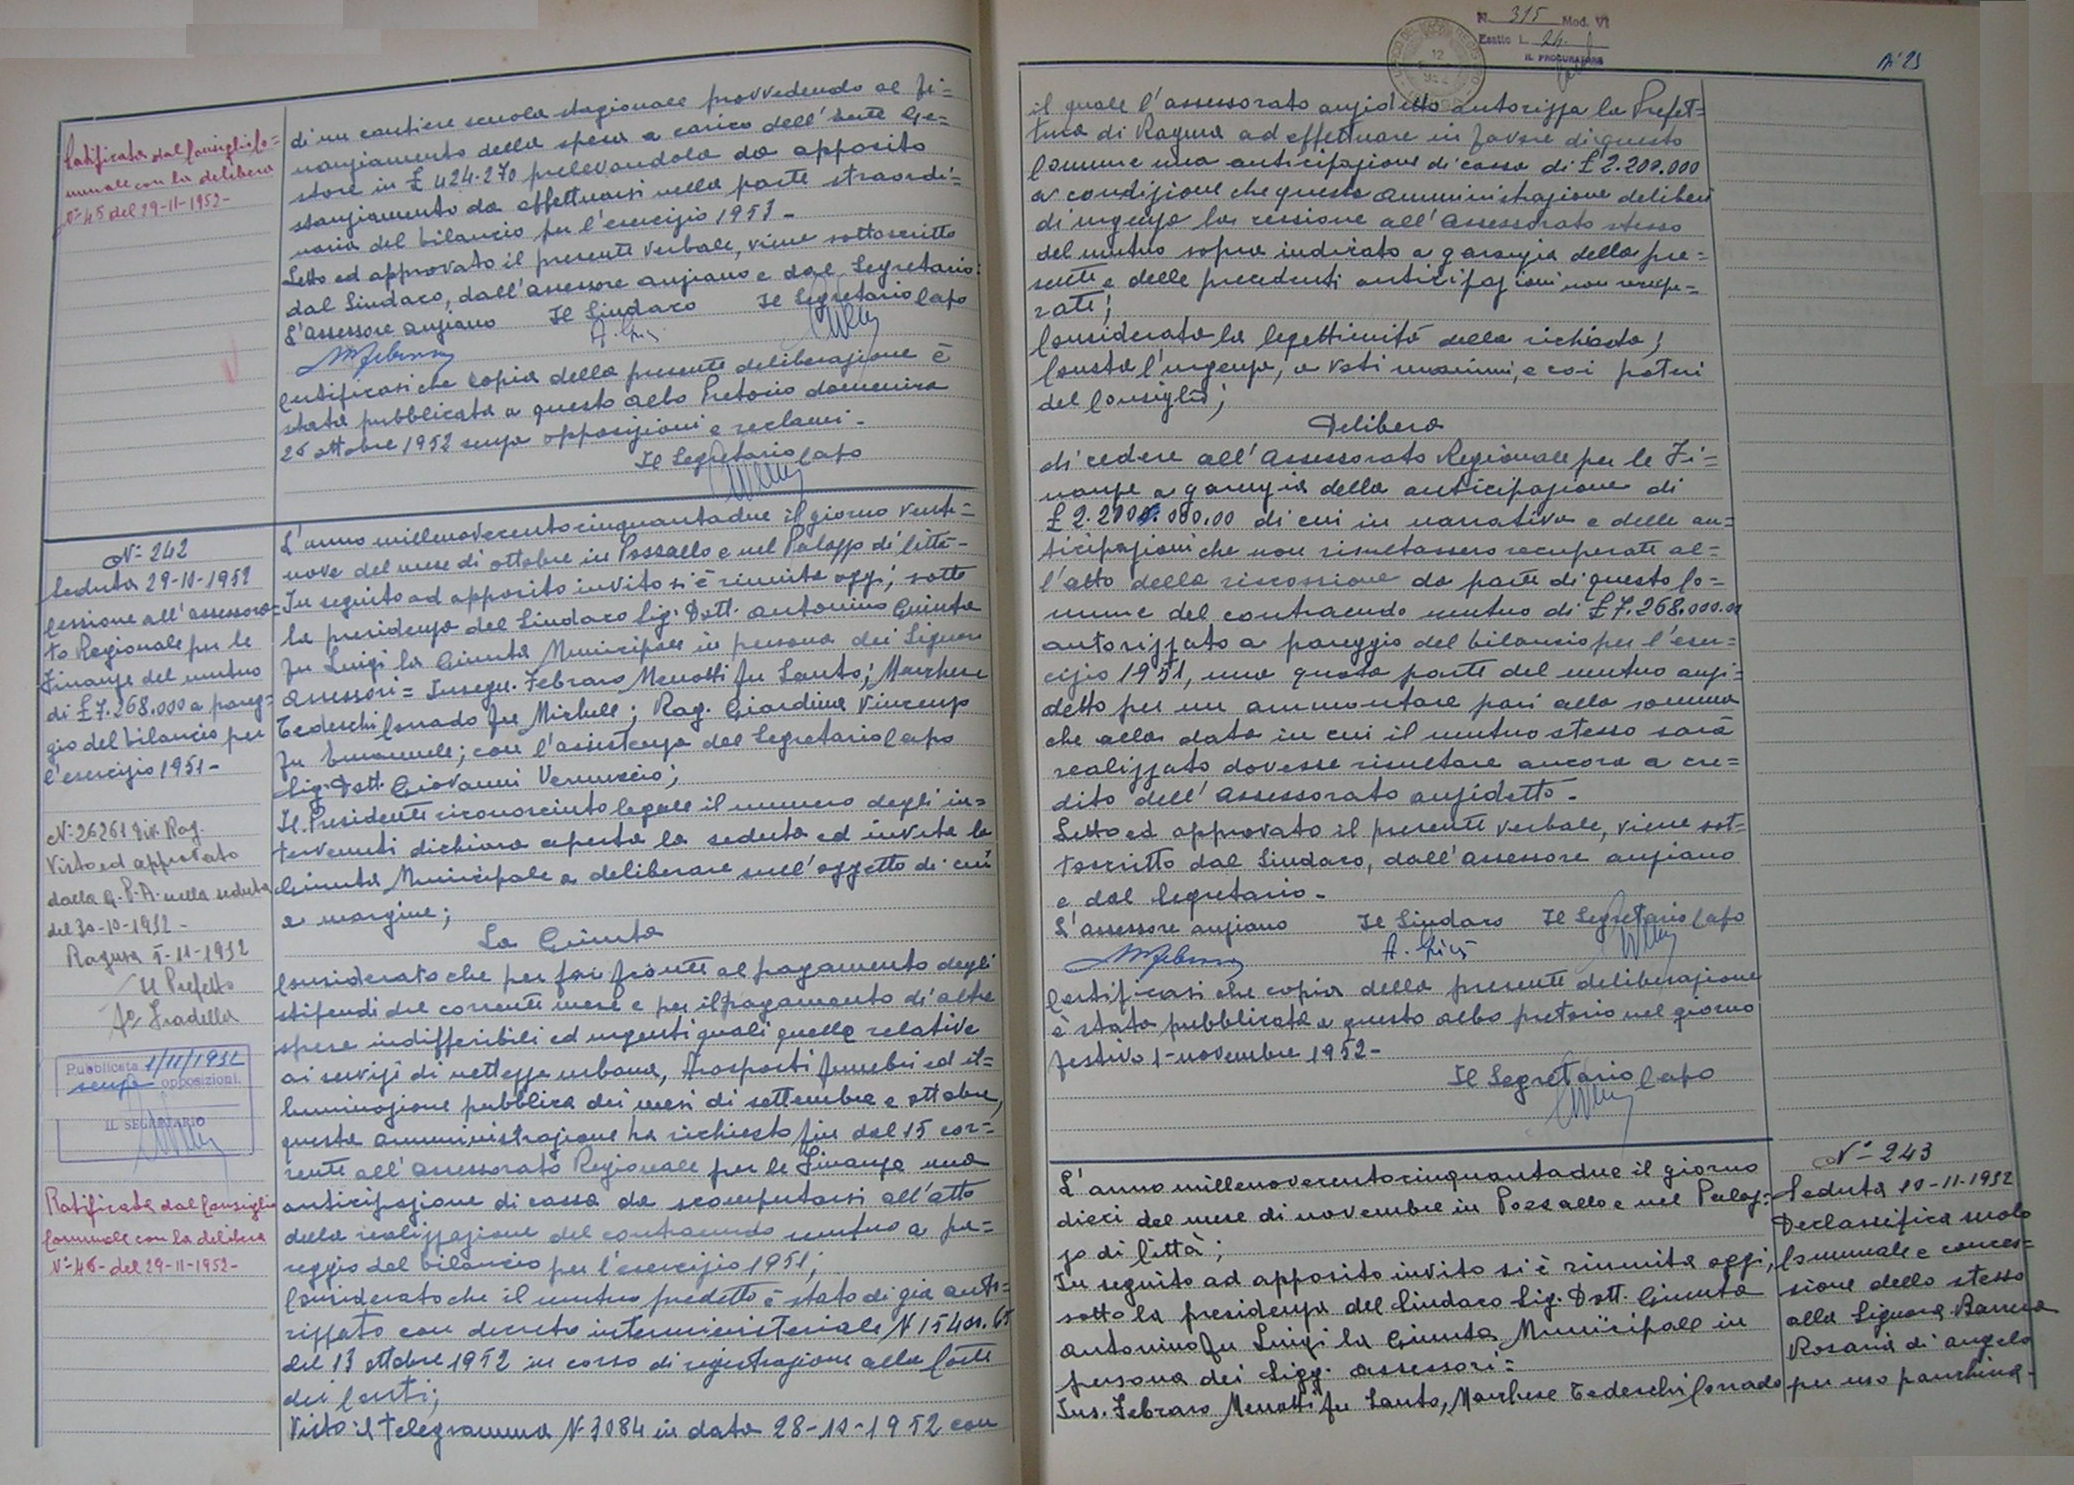 Ratificata dal Consiglio Co=
munale con la delibera
N° 45 del 29-11-1952-
di un cantiere scuola stagionale provvedendo al fi=
nanziamento della spesa a carico dell'Ente Ge=
store in £ 424.270 prelevandola da apposito
stanziamento da effettuarsi nella parte straordi=
naria del bilancio per l'esercizio 1953-
Letto ed approvato il presente verbale, viene sottoscritto
dal Sindaco, dall'assessore anziano e dal Segretario:
L'Assessore anziano Il Sindaco Il Segretario Capo
Certificasi che copia della presente deliberazione è
stata pubblicata a questo albo Pretorio domenica
26 ottobre 1952 senza opposizioni e reclami-
Il Segretario Capo
N° 242
Seduta 29-10-1952
Cessione all'assessora=
to Regionale per le
Finanze del mutuo
di £ 7.268.000 a pareg=
gio del bilancio per
l'esercizio 1951-
N° 26261 Div. Rag.
Visto ed approvato
dalla G.P.A. nella seduta
del 30-10-1952-
Ragusa 1-11-1952
Il Prefetto
Fo/ Fradella
Pubblicata 1/11/1952
senza opposizioni.
IL SEGRETARIO
Ratificata dal Consiglio
Comunale con la delibera
N° 46- del 29-11-1952-
L'anno millenovecentocinquantadue il giorno venti=
nove del mese di ottobre in Pozzallo e nel Palazzo di Città-
In seguito ad apposito invito si è riunita oggi, sotto
la presidenza del Sindaco Sig. Dott. Antonino Giunta
fu Luigi la Giunta Municipale in persona dei Signori
Assessori= Insegn. Febraro Menotti fu Santo; Marchese
Tedeschi Corrado fu Michele; Rag. Giardina Vincenzo
fu Emanuele; con l'assistenza del Segretario Capo
Sig. Dott. Giovanni Vernuccio;
Il Presidente riconosciuto legale il numero degli in=
tervenuti dichiara aperta la seduta ed invita la
Giunta Municipale a deliberare sull'oggetto di cui
a margine;
La Giunta
Considerato che per far fronte al pagamento degli
stipendi del corrente mese e per il pagamento di altre
spese indifferibili ed urgenti quali quelle relative
ai servizi di nettezza urbana, trasporti funebri ed il=
luminazione pubblica dei mesi di settembre e ottobre,
questa amministrazione ha richiesto fin dal 15 cor=
rente all'Assessorato Regionale per le Finanze una
anticipazione di cassa da scomputarsi all'atto
della realizzazione del contraendo mutuo a pa=
reggio del bilancio per l'esercizio 1951;
Considerato che il mutuo predetto è stato di già auto=
rizzato con decreto interministeriale N 15401.65
del 13 ottobre 1952 in corso di registrazione alla Corte
dei Conti;
Visto il telegramma N- 3084 in data 28-10-1952 con
N. 315 Mod. VI
Esatte L. 24.
IL PROCURATORE
N° 23
il quale l'assessorato anzidetto autorizza la Prefet=
tura di Ragusa ad effettuare in favore di questo
Comune una anticipazione di cassa di £ 2.200.000
a condizione che questa amministrazione deliberi
di urgenza la cessione all'Assessorato stesso
del mutuo sopra indicato a garanzia della pre=
sente e delle precedenti anticipazioni non recupe=
rate;
Considerata la legittimità della richiesta;
Constata l'urgenza, a voti unanimi, e coi poteri
del Consiglio;
Delibera
di cedere all'Assessorato Regionale per le Fi=
nanze a garanzia della anticipazione di
£ 2.200.000.00 di cui in narrativa e delle an=
ticipazioni che non risultassero recuperate al=
l'atto della riscossione da parte di questo Co=
mune del contraendo mutuo di £ 7.268.000.00
autorizzato a pareggio del bilancio per l'eser=
cizio 1951, una quota parte del mutuo anzi=
detto per un ammontare pari alla somma
che alla data in cui il mutuo stesso sarà
realizzato dovesse risultare ancora a cre=
dito dell'Assessorato anzidetto-
Letto ed approvato il presente verbale, viene sot=
toscritto dal Sindaco, dall'Assessore anziano
e dal Segretario-
L'assessore anziano Il Sindaco Il Segretario Capo
Certificasi che copia della presente deliberazione
è stata pubblicata a questo albo pretorio nel giorno
festivo 1- novembre 1952-
Il Segretario Capo
L'anno millenovecentocinquantadue il giorno
dieci del mese di novembre in Pozzallo e nel Palaz=
zo di Città;
In seguito ad apposito invito si è riunita oggi,
sotto la presidenza del Sindaco Sig. Dott. Giunta
Antonino fu Luigi la Giunta Municipale in
persona dei Sigg. Assessori=
Ins. Febraro Menotti fu Santo, Marchese Tedeschi Corrado
N° 243
Seduta 10-11-1952
Declassifica suolo
Comunale e conces=
sione dello stesso
alla Signora Barrera
Rosaria di Angelo
per uso panchina-